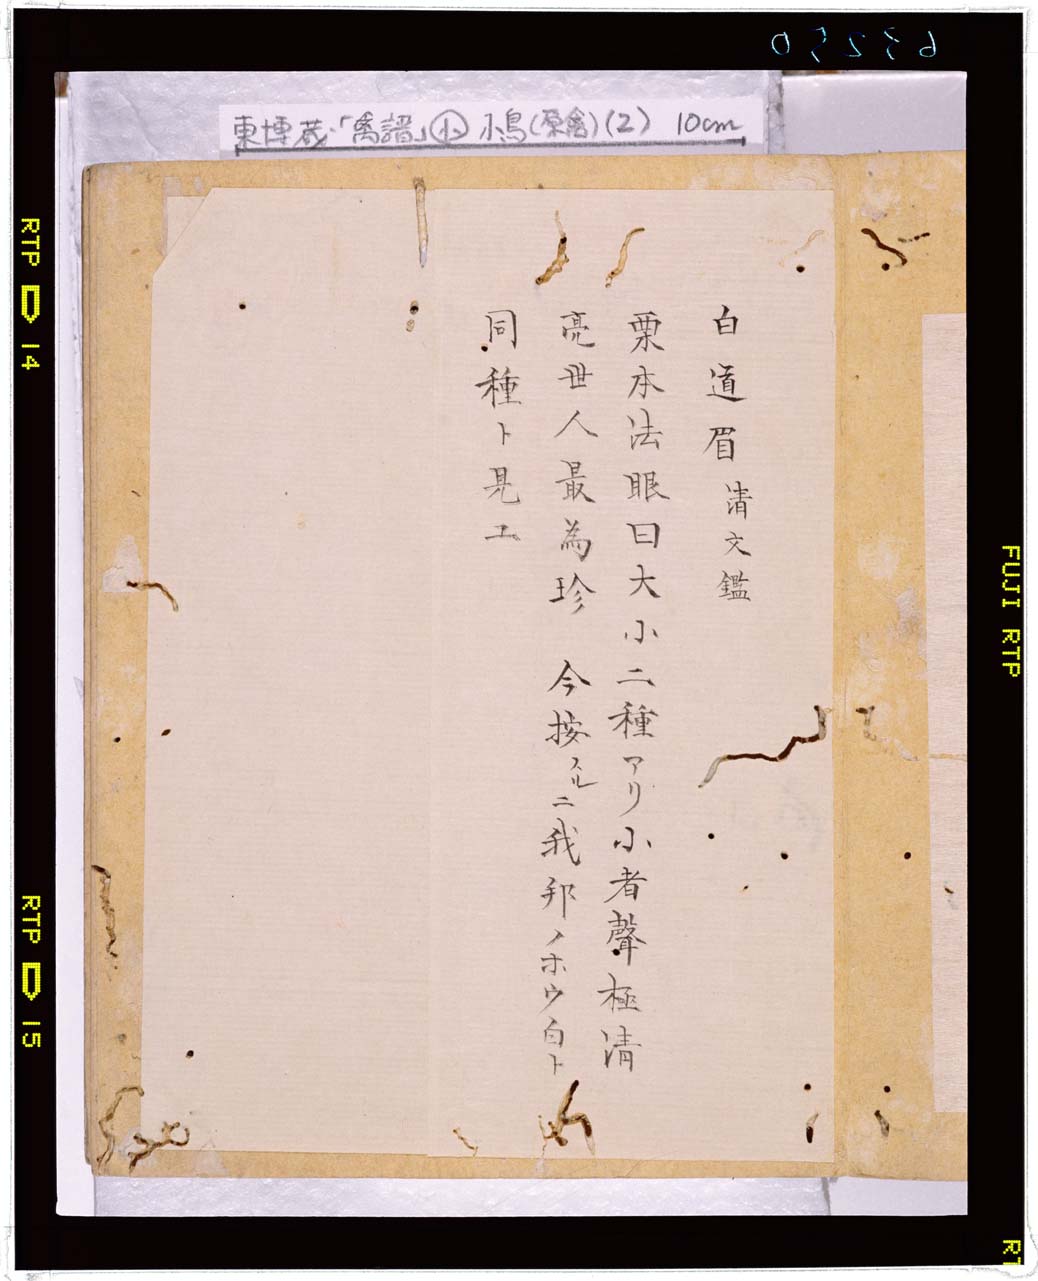 63250
東博蔵「禽譜」㊦ 小鳥(原禽)(2) 10cm
白道眉 清文鑑
栗本法眼曰大小二種アリ小者聲極清
亮世人最為珍 今按スルニ我邦ノホウ白ト
同種ト見エ
RTP 14
RTP 15
FUJI RTP